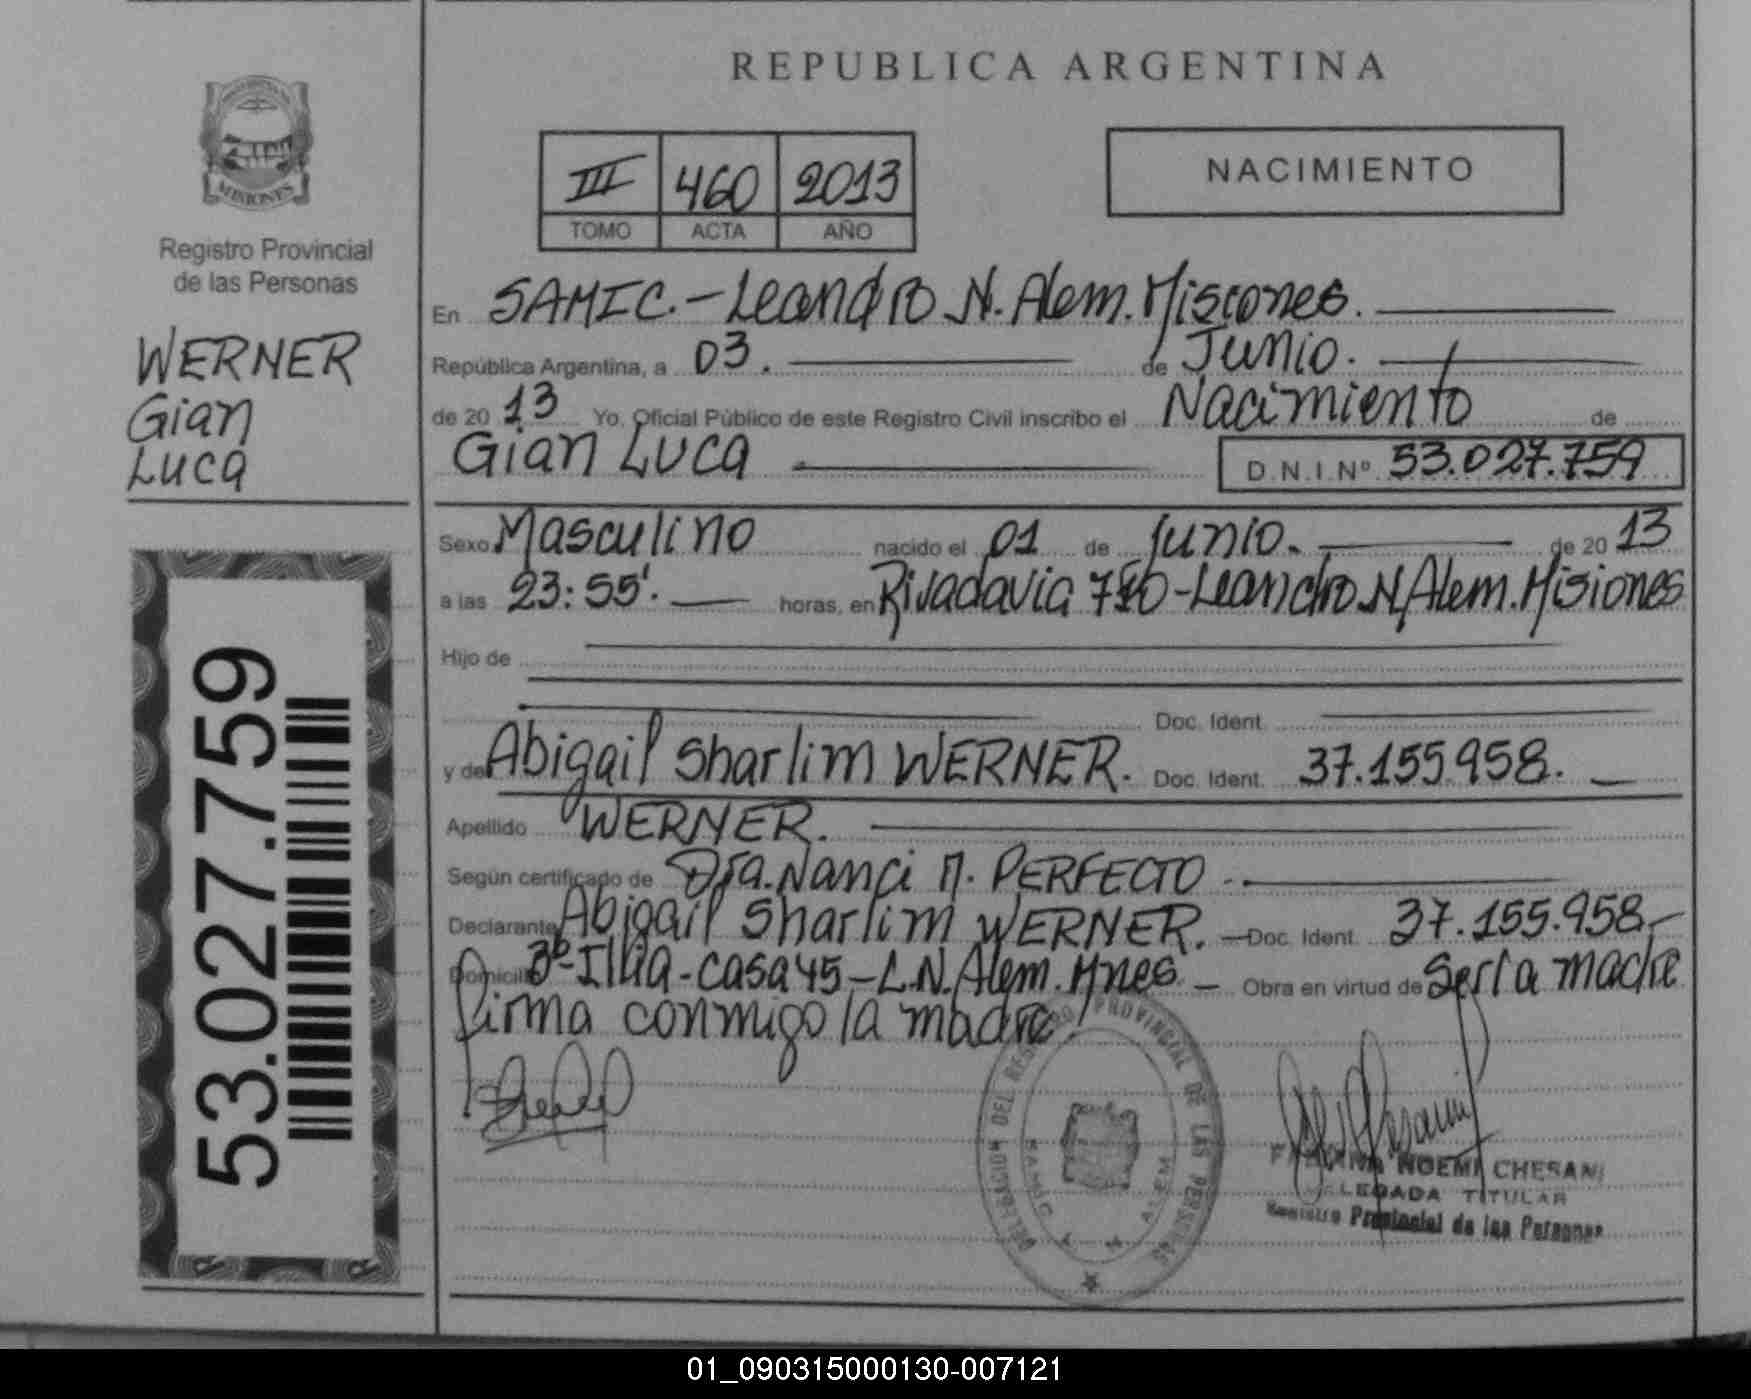 REPUBLICA ARGENTINA
MISIONES
Registro Provincial
de las Personas
WERNER
Gian
Luca
53.027.759
III 460 2013
TOMO ACTA AÑO
NACIMIENTO
En SAMIC.-Leandro N. Alem. Misiones.
República Argentina, a 03. de Junio.
de 20 13 Yo, Oficial Público de este Registro Civil inscribo el Nacimiento de
Gian Luca D.N.I.Nº 53.027.759
Sexo Masculino nacido el 01 de Junio. de 20 13
a las 23:55'. horas, en Rivadavia -Leandro N. Alem. Misiones
Hijo de
Doc. Ident.
y de Abigail Sharlim WERNER. Doc. Ident. 37.155.958.
Apellido WERNER.
Según certificado de Dra. Nanci M. PERFECTO -.
Declarante Abigail Sharlim WERNER. - Doc. Ident. 37.155.958.-
Domicilio Bº-Illia-casa 45-L.N. Alem. Mnes. - Obra en virtud de Ser la madre
firma conmigo la madre.
DELEGACION DEL REGISTRO PROVINCIAL DE LAS PERSONAS
N. ALEM
NOEMI CHESANI
DELEGADA TITULAR
Registro Provincial de las Personas
01_090315000130-007121